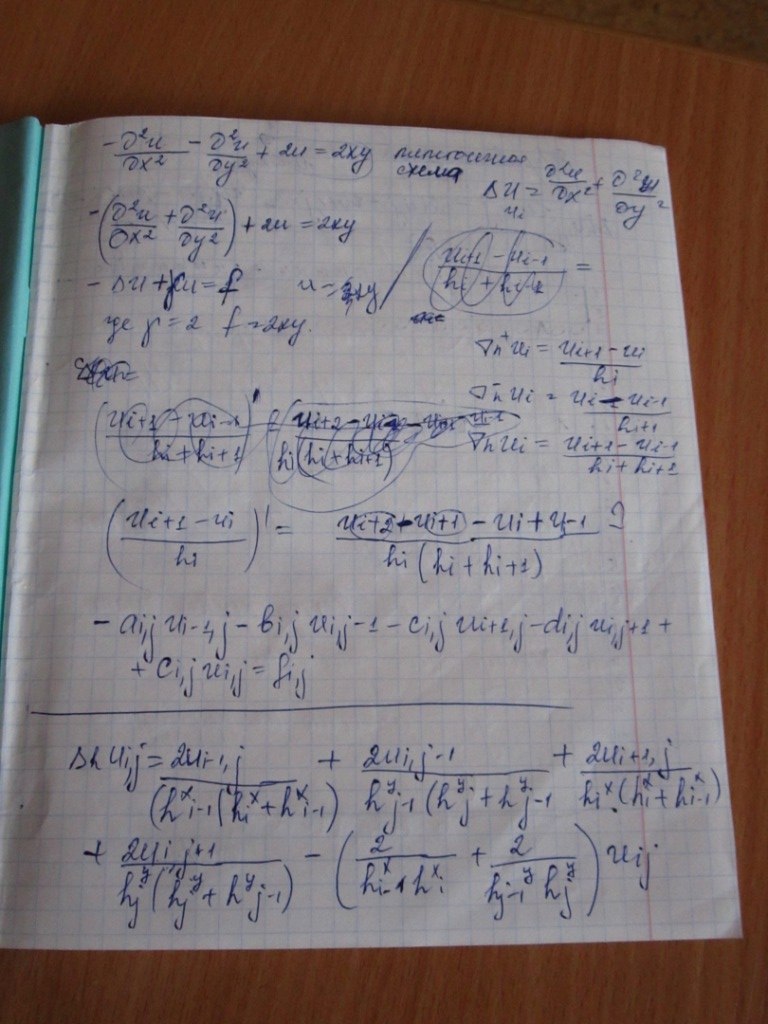 -∂²u/∂x² - ∂²u/∂y² + 2u = 2xy пятиточечная
схема
Δu = ∂²u/∂x² + ∂²u/∂y²
ui
-(∂²u/∂x² + ∂²u/∂y²) + 2u = 2xy
(ui+1 - ui-1)/(hi + hi-1) =
-Δu + γu = f u = xy
где γ = 2 f = 2xy.
∇n⁺ui = (ui+1 - ui)/hi
∇n⁻ui = (ui - ui-1)/hi+1
∇nui = (ui+1 - ui-1)/(hi + hi+1)
((ui+1 - ui-1)/(hi + hi+1))' =
((ui+1 - ui)/hi)' = (ui+2 - ui+1 - ui + u-1)/(hi(hi + hi+1)) ?
- ai,j ui-1,j - bi,j ui,j-1 - ci,j ui+1,j - di,j ui,j+1 +
+ ci,j ui,j = fi,j
Δh ui,j = 2ui-1,j/(hˣi-1(hiˣ + hˣi-1) + 2ui,j-1/(hʸj-1(hʸj + hʸj-1) + 2ui+1,j/(hiˣ(hiˣ + hˣi-1)
+ 2ui,j+1/(hjʸ(hjʸ + hʸj-1) - (2/(hˣi-1 hˣi) + 2/(hj-1ʸ hjʸ)) uij